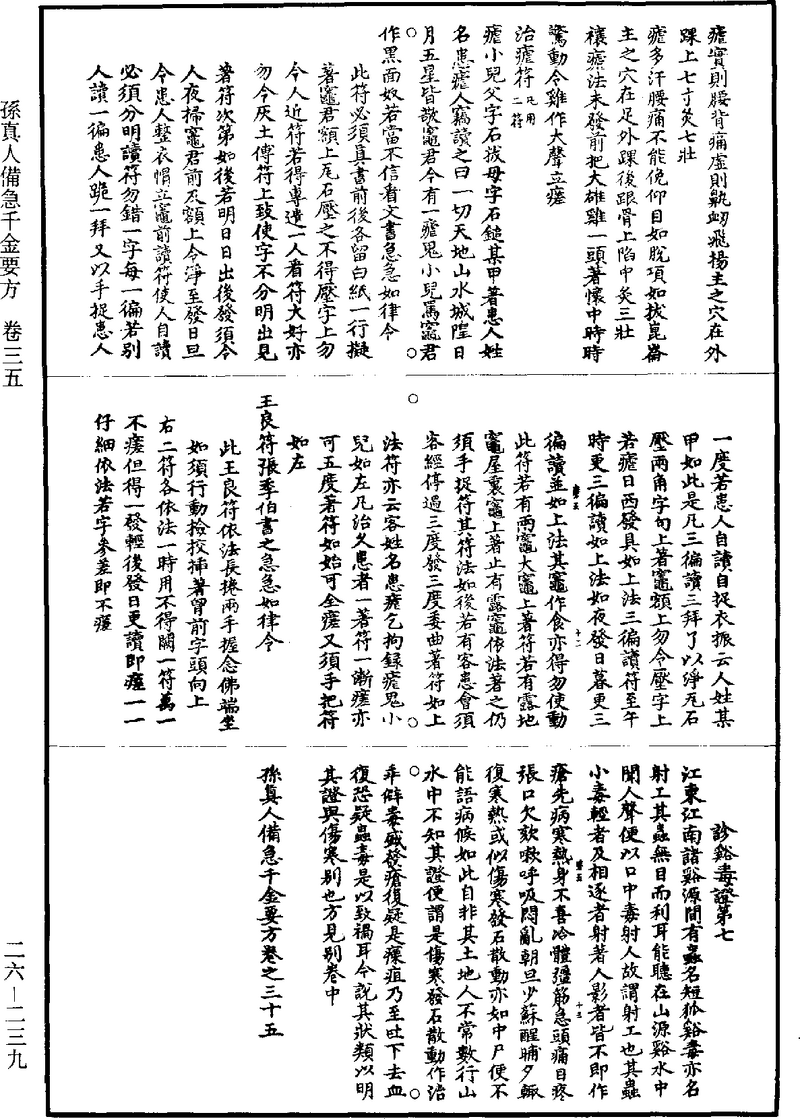 孫真人備急千金要方　卷三五
瘧實則腰背痛虛則鼽衂飛揚主之穴在外
踝上七寸灸七壯
瘧多汗腰痛不能俛仰目如脫項如拔崑崙
主之穴在足外踝後跟骨上陷中灸三壯
禳瘧法未發前抱大雄雞一頭著懷中時時
驚動令雞作大聲立瘥
治瘧符凡用二符
瘧小兒父字石拔母字石鎚某甲著患人姓
名患瘧人竊讀之曰一切天地山水城隍日
月五星皆敬竈君今有一瘧鬼小兒罵竈君
作黑面奴若當不信看文書急急如律令
此符必須真書前後各留白紙一行擬
著竈君額上瓦石壓之不得壓字上勿
令人近符若得專遣一人看符大好亦
勿令灰土傳符上致使字不分明出見
著符次第如後若明日日出後發須令
人夜掃竈君前及額上令淨至發日旦
令患人整衣帽立竈前讀符使人自讀
必須分明讀符勿錯一字每一徧若別
人讀一徧患人跪一拜又以手捉患人
一度若患人自讀自捉衣振云人姓某
甲如此是凡三徧讀三拜了以淨瓦石
壓兩角字向上著竈額上勿令壓字上
若瘧日西發具如上法三徧讀符至午
時更三徧讀如上法如夜發日暮更三
徧讀並如上法其竈作食亦得勿使動
此符若有兩竈大竈上著符若有露地
竈屋裏竈上著止有露竈依法著之仍
須手捉符其符法如後若有客患會須
客經停過三度發三度委曲著符如上
法符亦云客姓名患瘧乞拘錄瘧鬼小
兒如左凡治久患者一著符一漸瘥亦
可五度著符如始可全瘥又須手把符
如左
王良符張季伯書之急急如律令
此王良符依法長捲兩手握念佛端坐
如須行動檢校插著胷前字頭向上
右二符各依法一時用不得闕一符萬一
不瘥但得一發輕後發日更讀即瘥一一
仔細依法若字參差即不瘥
診谿毒證第七
江東江南諸谿源間有蟲名短狐谿毒亦名
射工其蟲無目而利耳能聽在山源谿水中
聞人聲便以口中毒射人故謂射工也其蟲
小毒輕者及相逐者射著人影者皆不即作
瘡先病寒熱身不喜冷體彊筋急頭痛目疼
張口欠欬嗽呼吸悶亂朝旦少蘇醒晡夕輒
復寒熱或似傷寒發石散動亦如中尸便不
能語病候如此自非其土地人不常數行山
水中不知其證便謂是傷寒發石散動作治
乖僻毒盛發瘡復疑是瘭疽乃至吐下去血
復恐疑蟲毒是以致禍耳今說其狀類以明
其證與傷寒別也方見別卷中
孫真人備急千金要方卷之三十五
二六—二三九